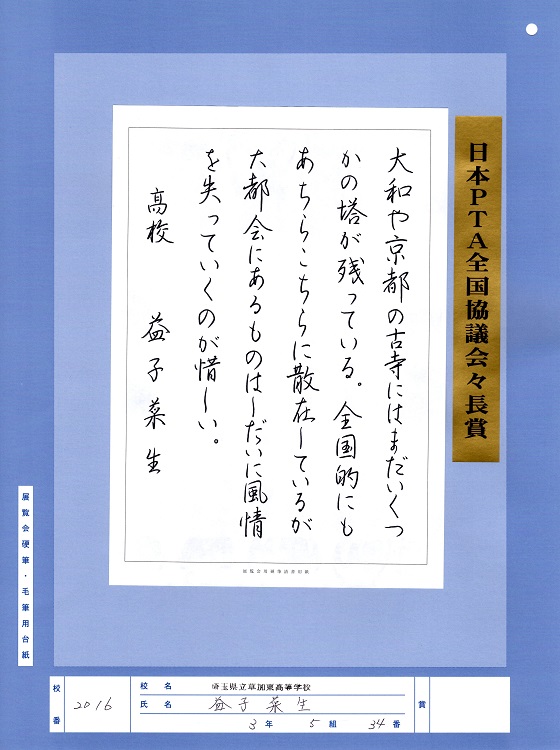 日本PTA全国協議会々長賞
大和や京都の古寺にはまだいくつ
かの塔が残っている。全国的にも
あちらこちらに散在しているが
大都会にあるものはしだいに風情
を失っていくのが惜しい。
高校 益子菜生
展覧会硬筆・毛筆用台紙
校番 2016
校名 埼玉県立草加東高等学校
氏名 益子菜生
3年 5組 34番
賞